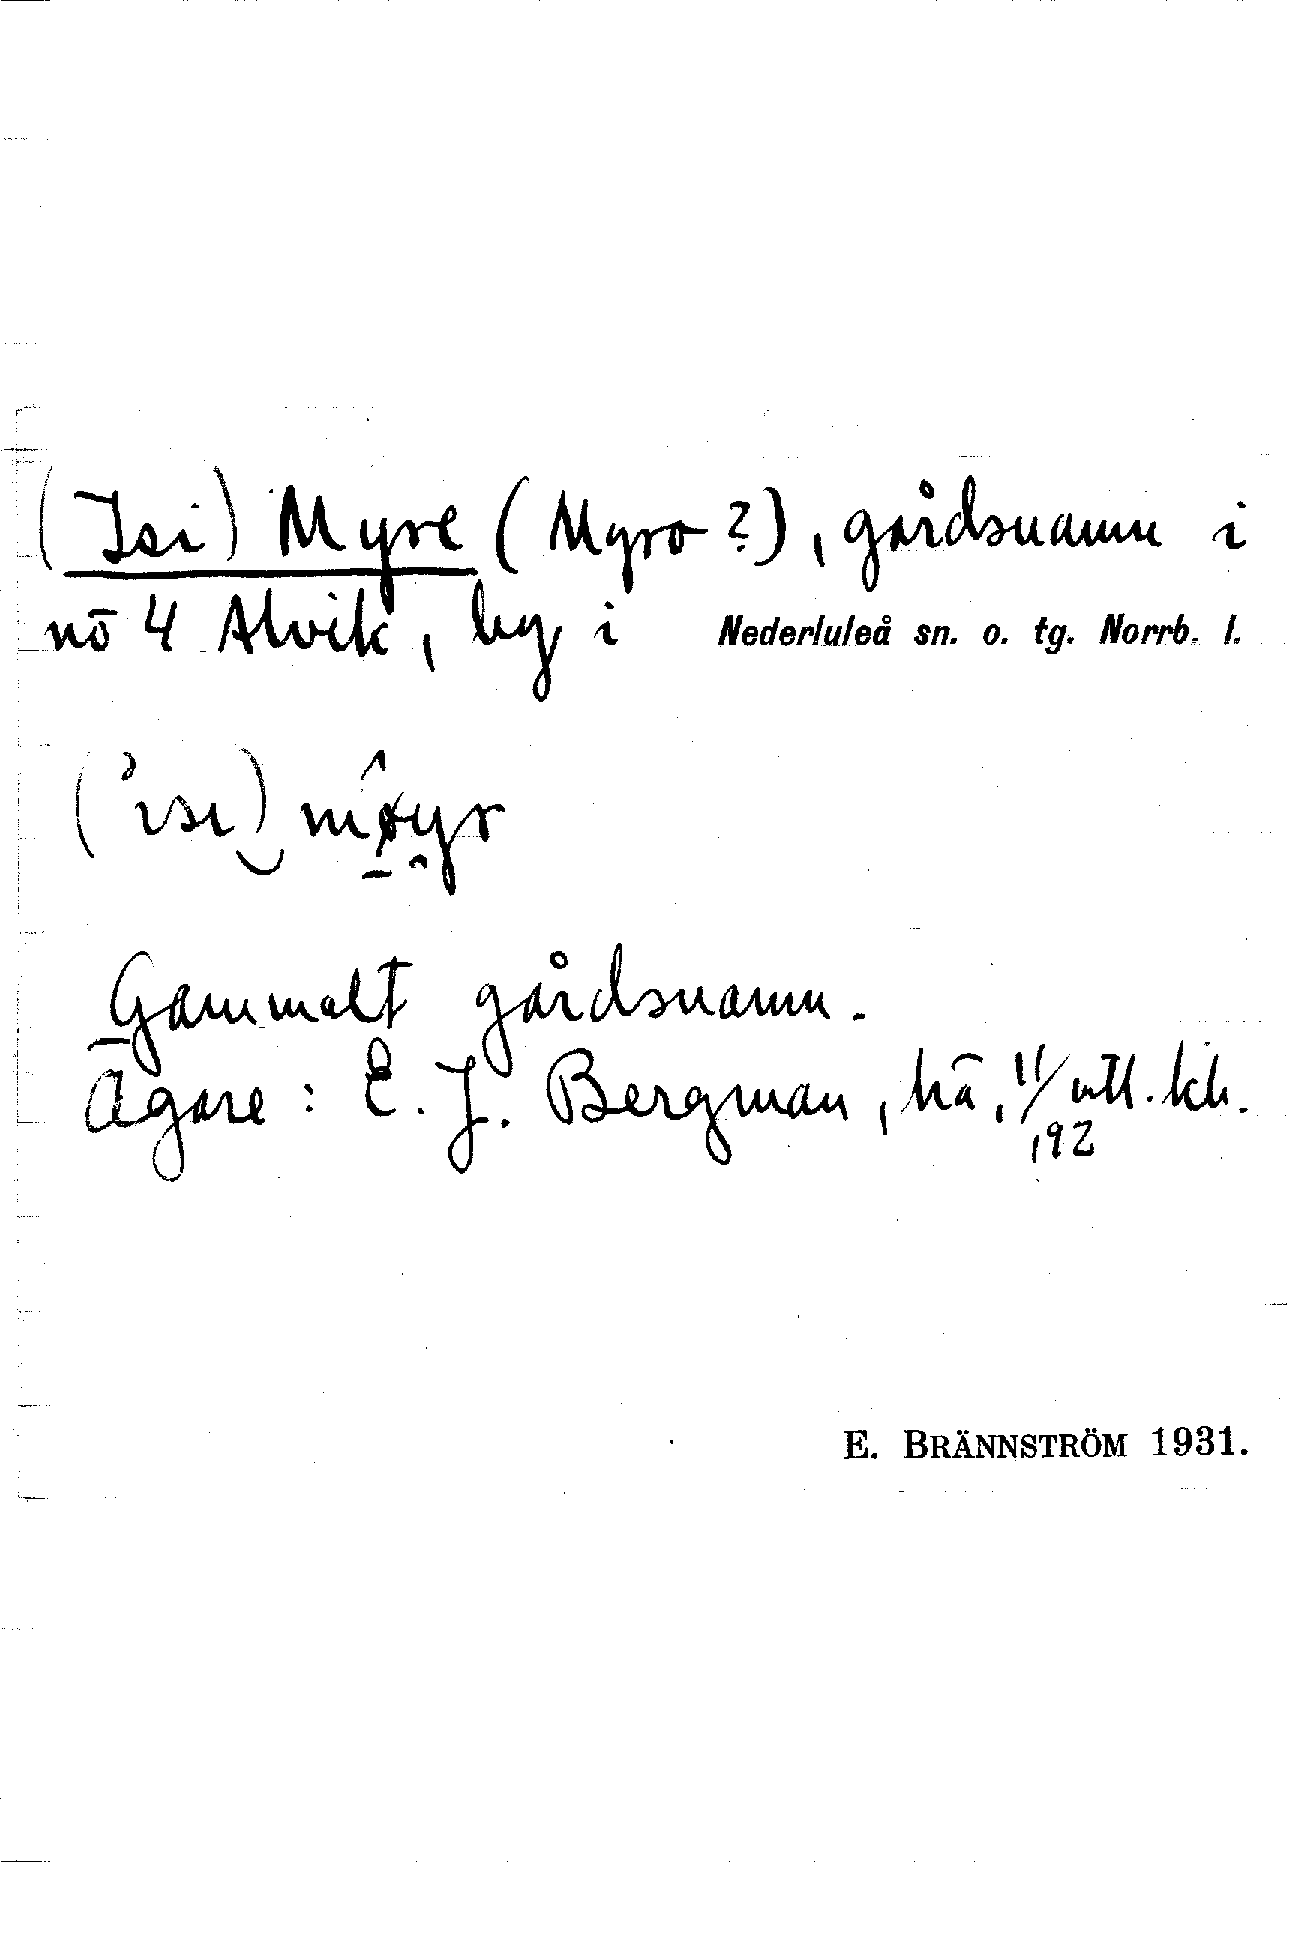 (Isi) Myre (Myro?), gårdsnamn i
nō 4 Alvik, by i Nederluleå sn. o. tg. Norrb. l.
(ısı)
Gammalt gårdsnamn.
Ägare: E. J. Bergman, hä, 11/192 mtl. kh.
E. BRÄNNSTRÖM 1931.